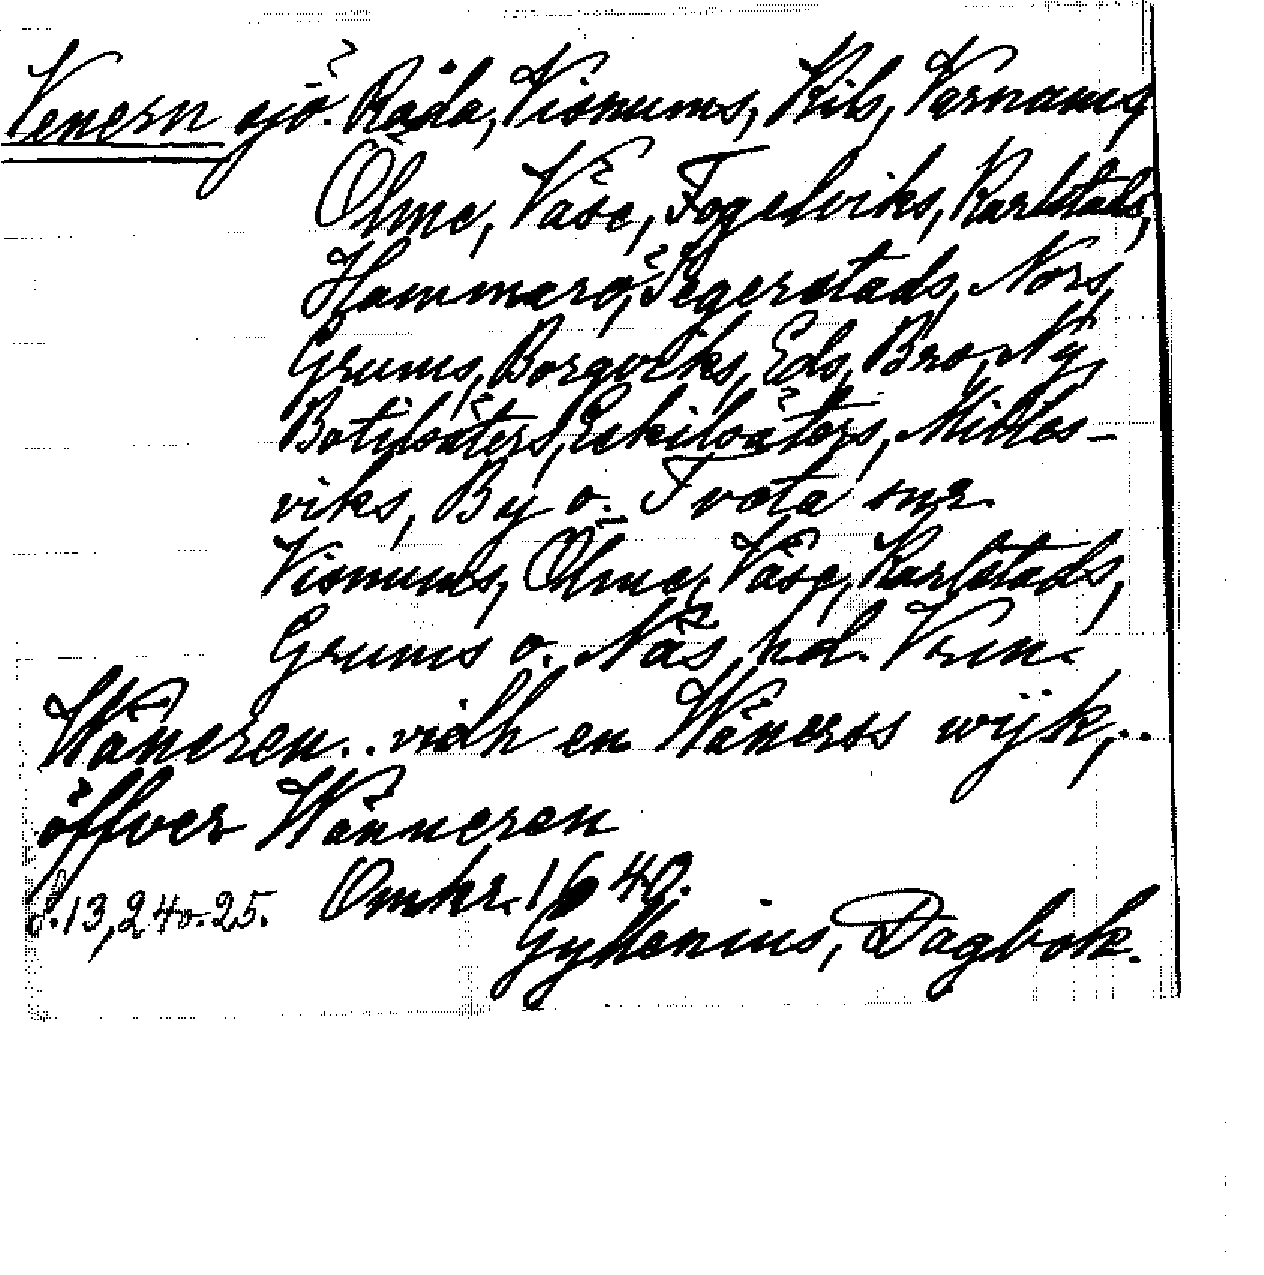 Venern sjö. Råda, Visnums, Kils, Varnums,
Ölme, Väse, Fogelviks, Karlstads,
Hammarö, Segerstads, Nors,
Grums, Borgviks, Eds, Bro, Ny,
Botilsäters, Eskilsäters, Millesviks, By o. Tveta snr
Visnums, Ölme, Väse, Karlstads,
Grums o. Näs hd. Vrml.
Wäneren.. vidh en Wänerss wijk,..
öffver Wänneren
s. 13, 24 o. 25. Omkr. 1640.
Gyllenius, Dagbok.